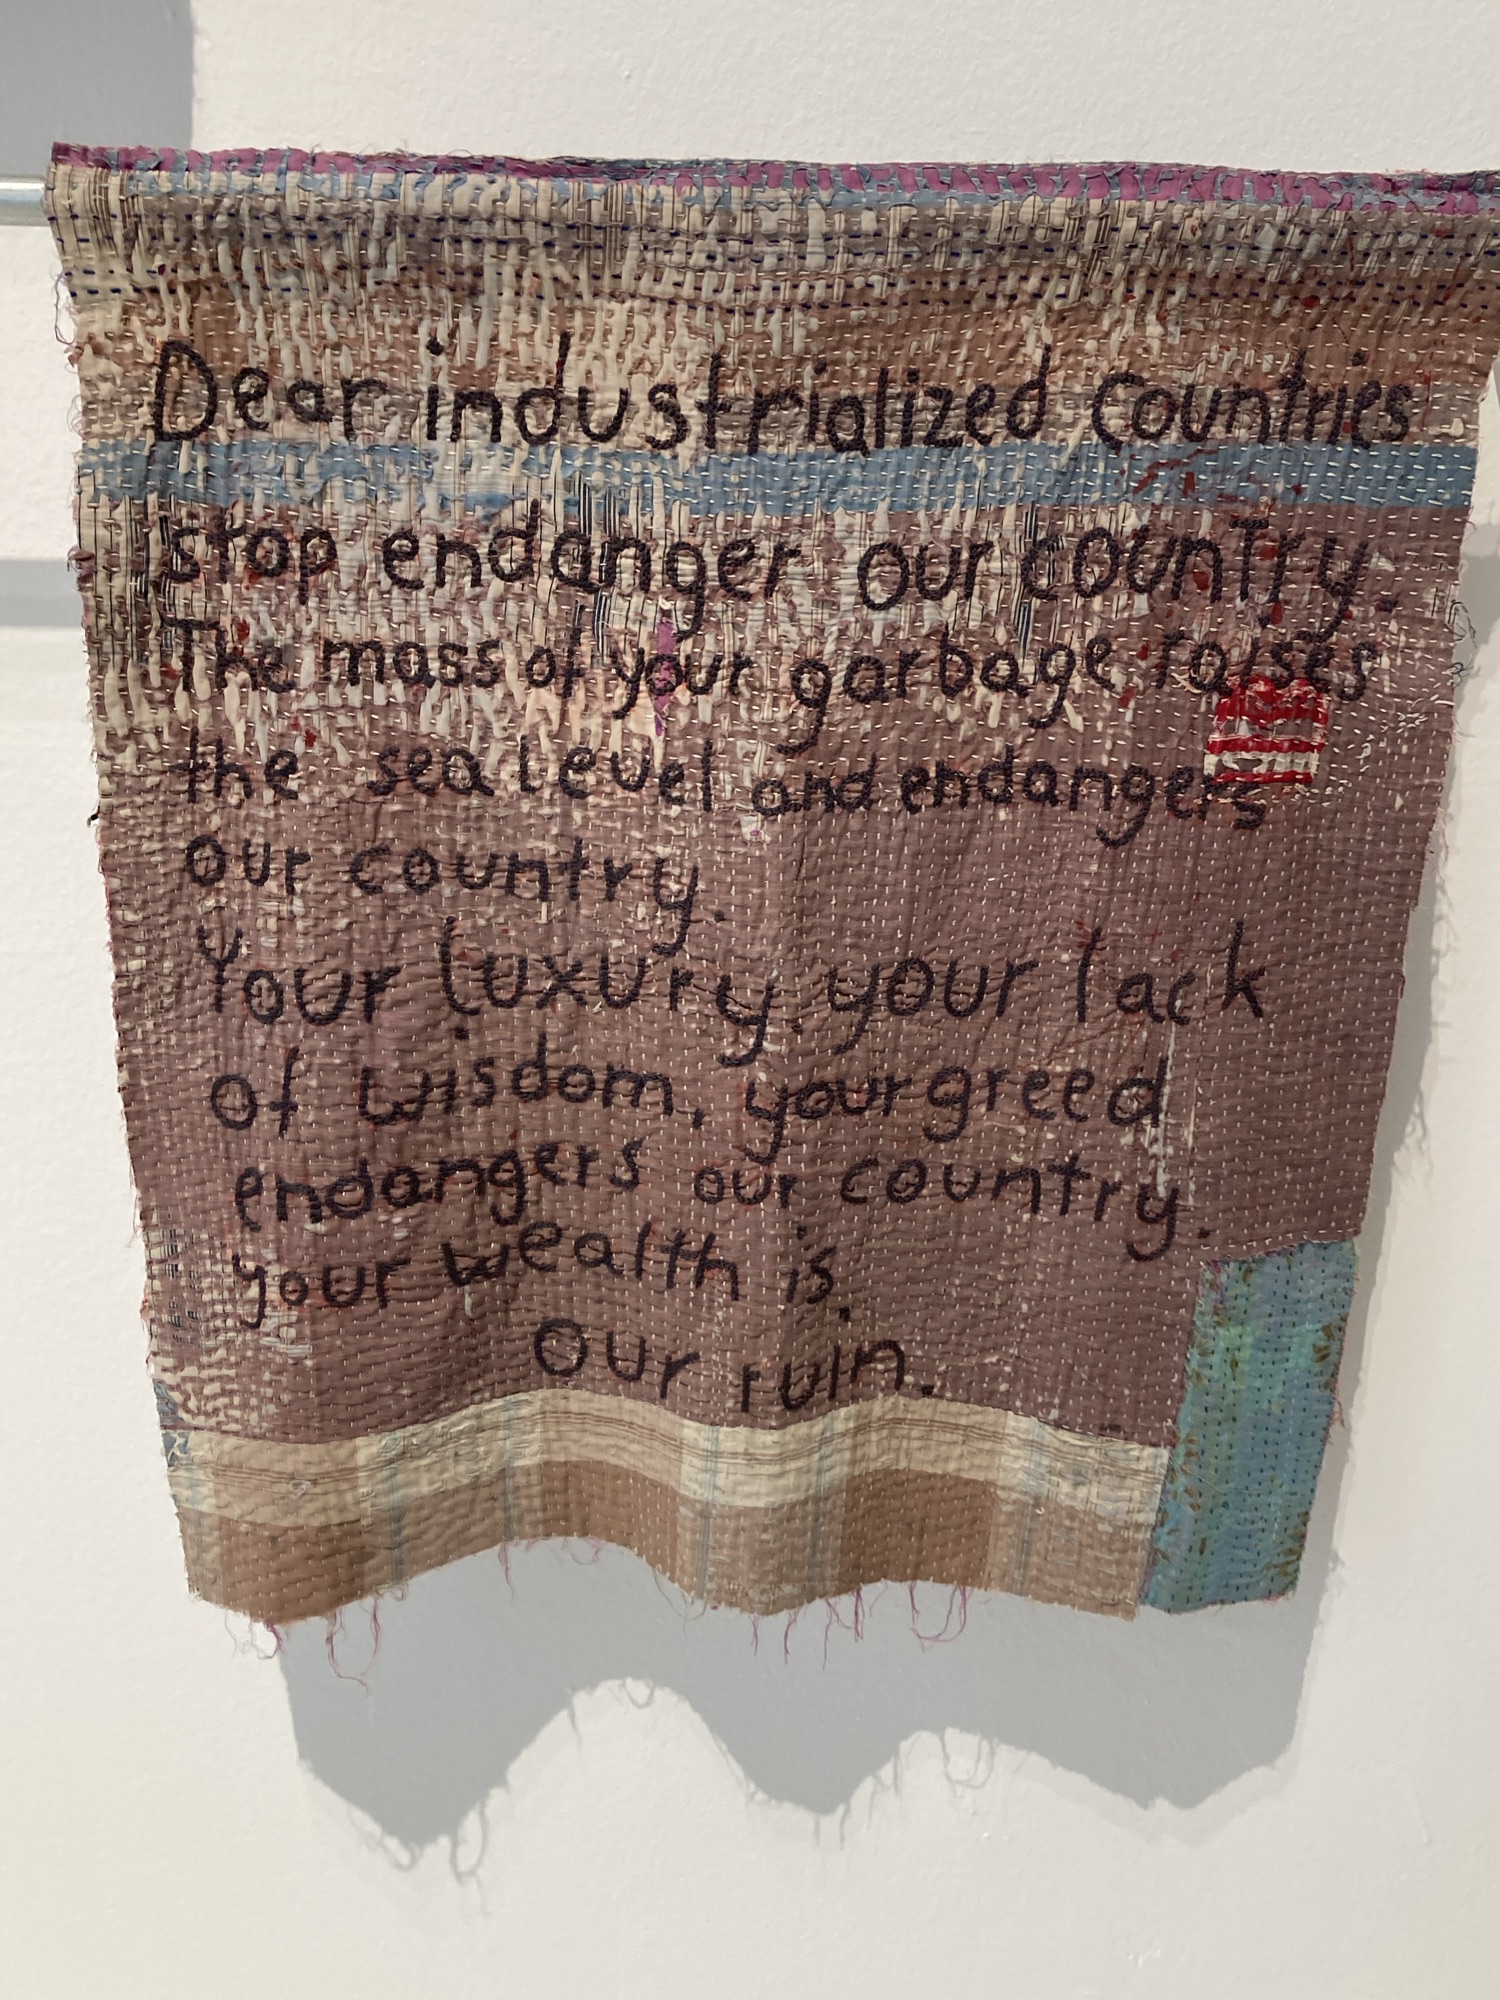 Dear industrialized countries
stop endanger our country.
The mass of your garbage raises
the sea level and endangers
our country.
Your luxury, your lack
of wisdom, your greed
endangers our country.
your wealth is
our ruin.